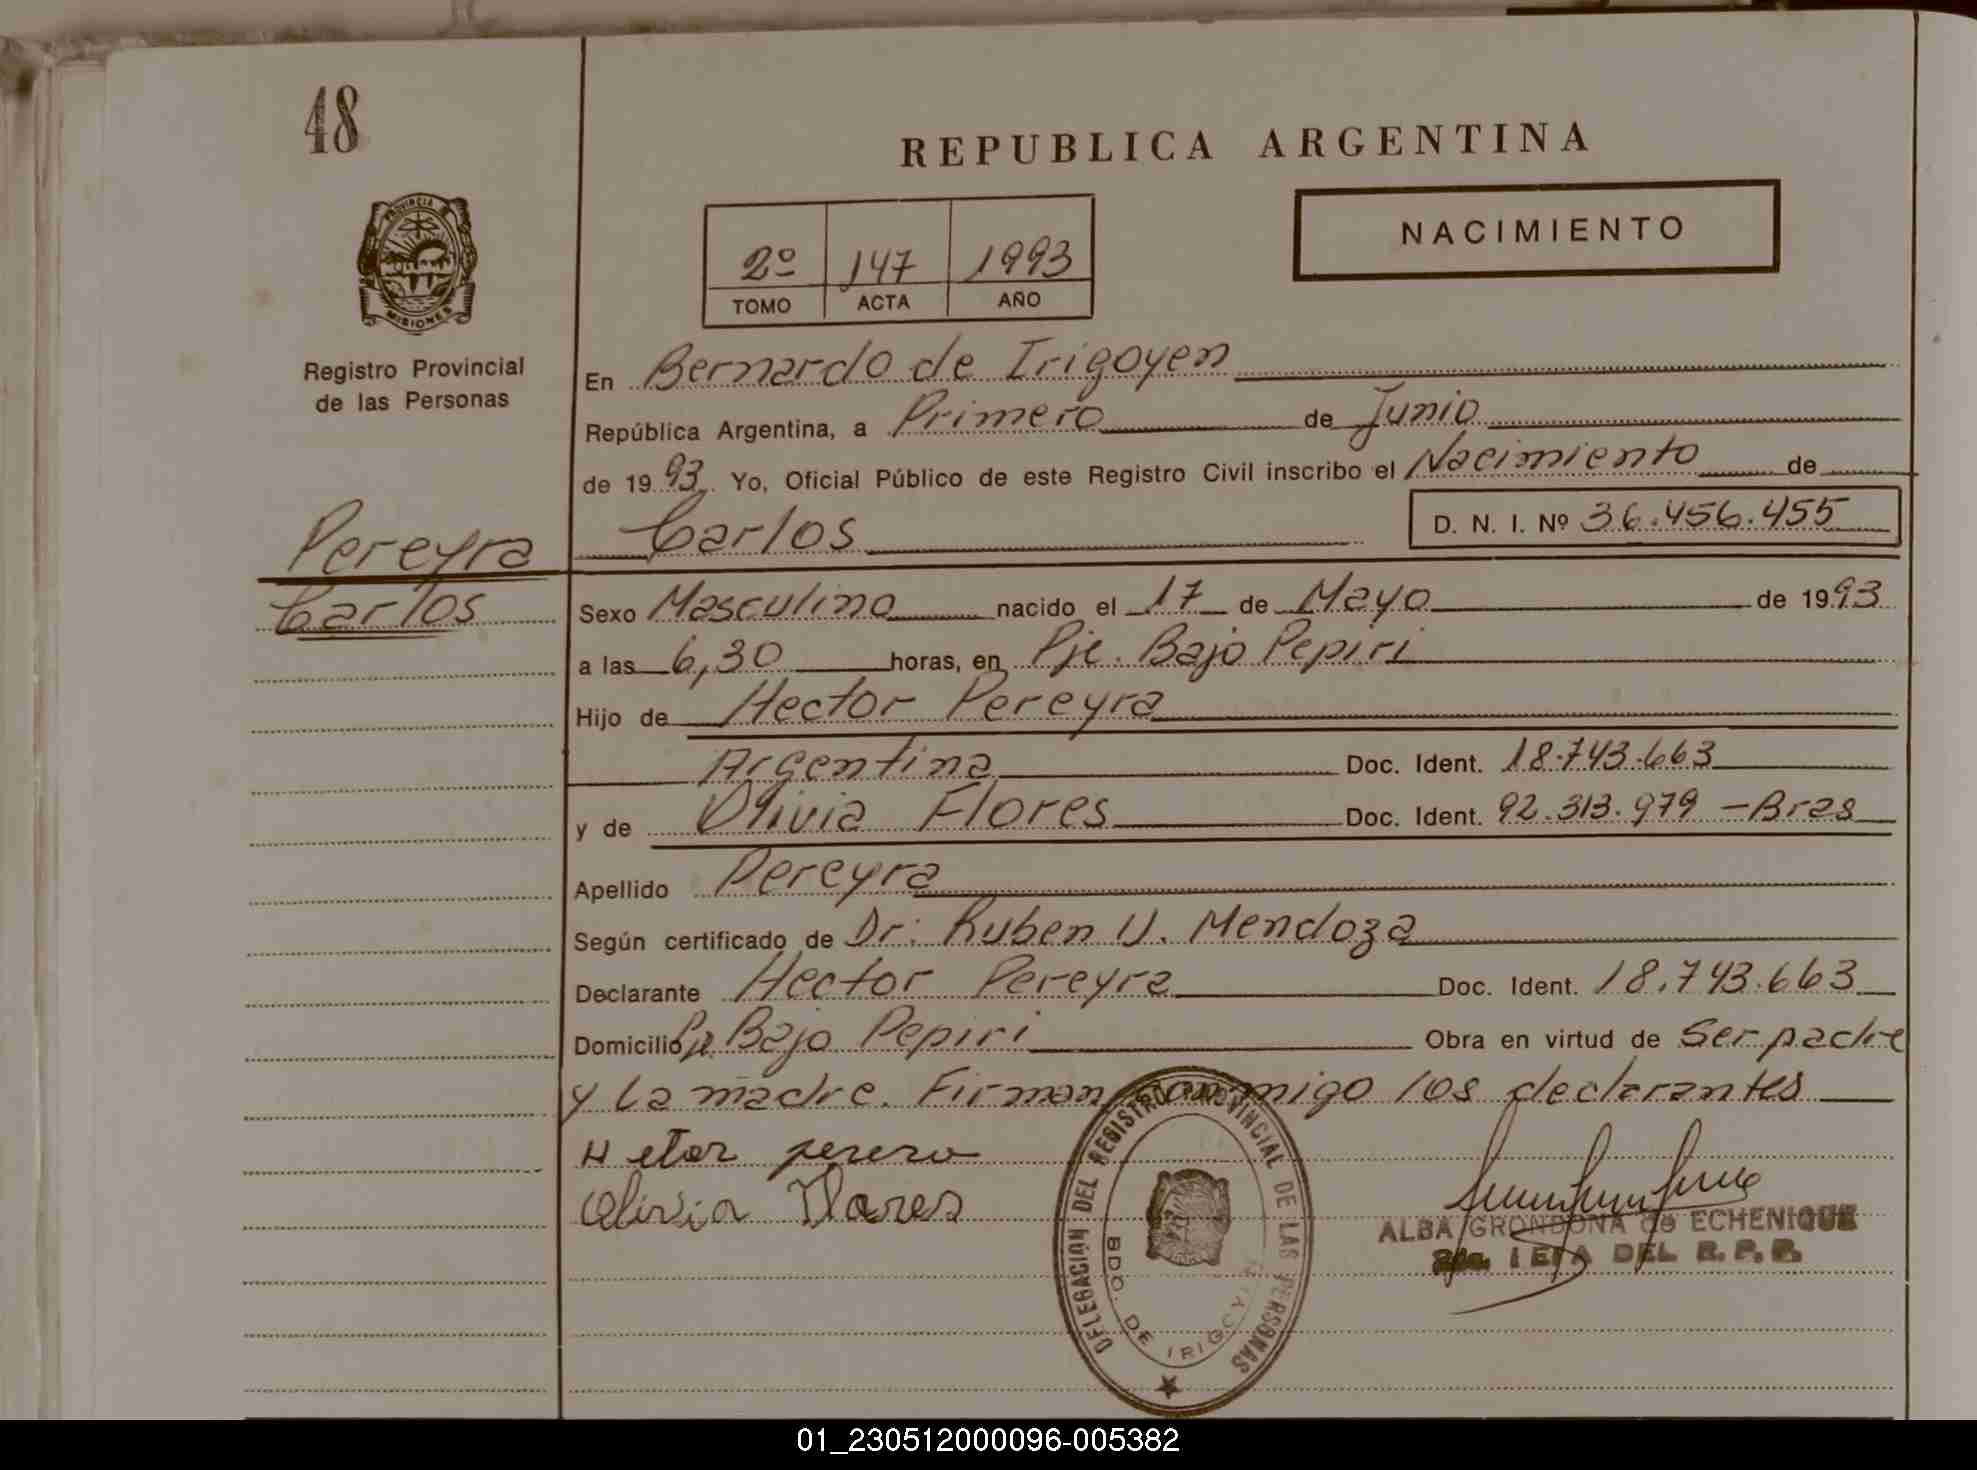 48
REPUBLICA ARGENTINA
NACIMIENTO
2º 147 1993
TOMO ACTA AÑO
PROVINCIA DE
MISIONES
Registro Provincial
de las Personas
En Bernardo de Irigoyen
República Argentina, a Primero de Junio
de 1993 Yo, Oficial Público de este Registro Civil inscribo el Nacimiento de
Carlos D. N. I. Nº 36.456.455
Pereyra
Carlos
Sexo Masculino nacido el 17 de Mayo de 1993
a las 6,30 horas, en Pje. Bajo Pepiri
Hijo de Hector Pereyra
Argentina Doc. Ident. 18.743.663
y de Olivia Flores Doc. Ident. 92.313.979 - Bras
Apellido Pereyra
Según certificado de Dr: Ruben U. Mendoza
Declarante Hector Pereyra Doc. Ident. 18.743.663
Domicilio Pje. Bajo Pepiri Obra en virtud de Ser padre
y la madre. Firman conmigo los declarantes
Hetor perera
Olivia Flores
DELEGACION DEL REGISTRO PROVINCIAL DE LAS PERSONAS
BDO. DE IRIGOYEN
ALBA GRONDONA de ECHENIQUE
2da. JEFA DEL R. P. P.
01_230512000096-005382